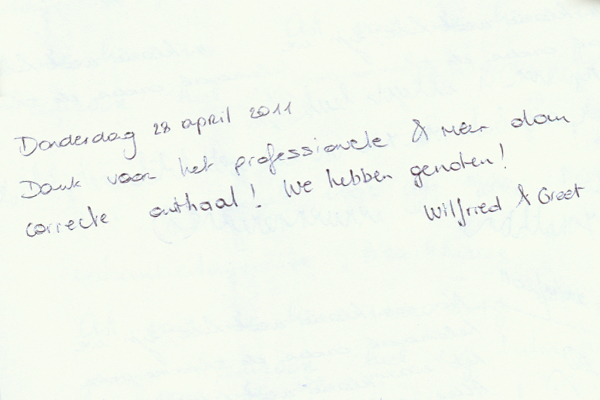 Donderdag 28 april 2011
Dank voor het professionele & meer dan
correcte onthaal! We hebben genoten!
Wilfried & Greet